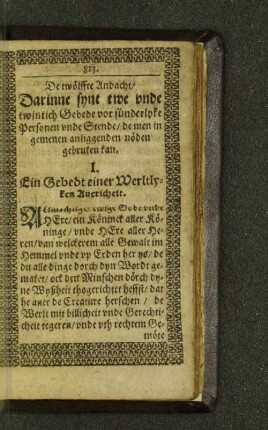 813.
De twölffte Andacht/
Darinne synt twe vnde
twintich Gebede vor sünderlyke
Personen vnde Stende/ de men in
gemenen anliggenden nöden
gebruken kan.
I.
Ein Gebedt einer Werltly-
ken Auericheit.
Almechtige/ ewige Godt vnde
HEre/ ein Köninck aller Kö-
ninge/ vnde HEre aller He-
ren/ van welckerem alle Gewalt im
Hemmel vnde vp Erden her ys/ de
du alle dinge dorch dyn Wordt ge-
maket/ ock den Minschen dörch dy-
ne Wyßheit thogerichtet hefft/ dat
he auer de Creature herschen/ de
Werlt mit billicheit vnde Gerechti-
cheit regeren/ vnde vth rechtem Ge-
möte